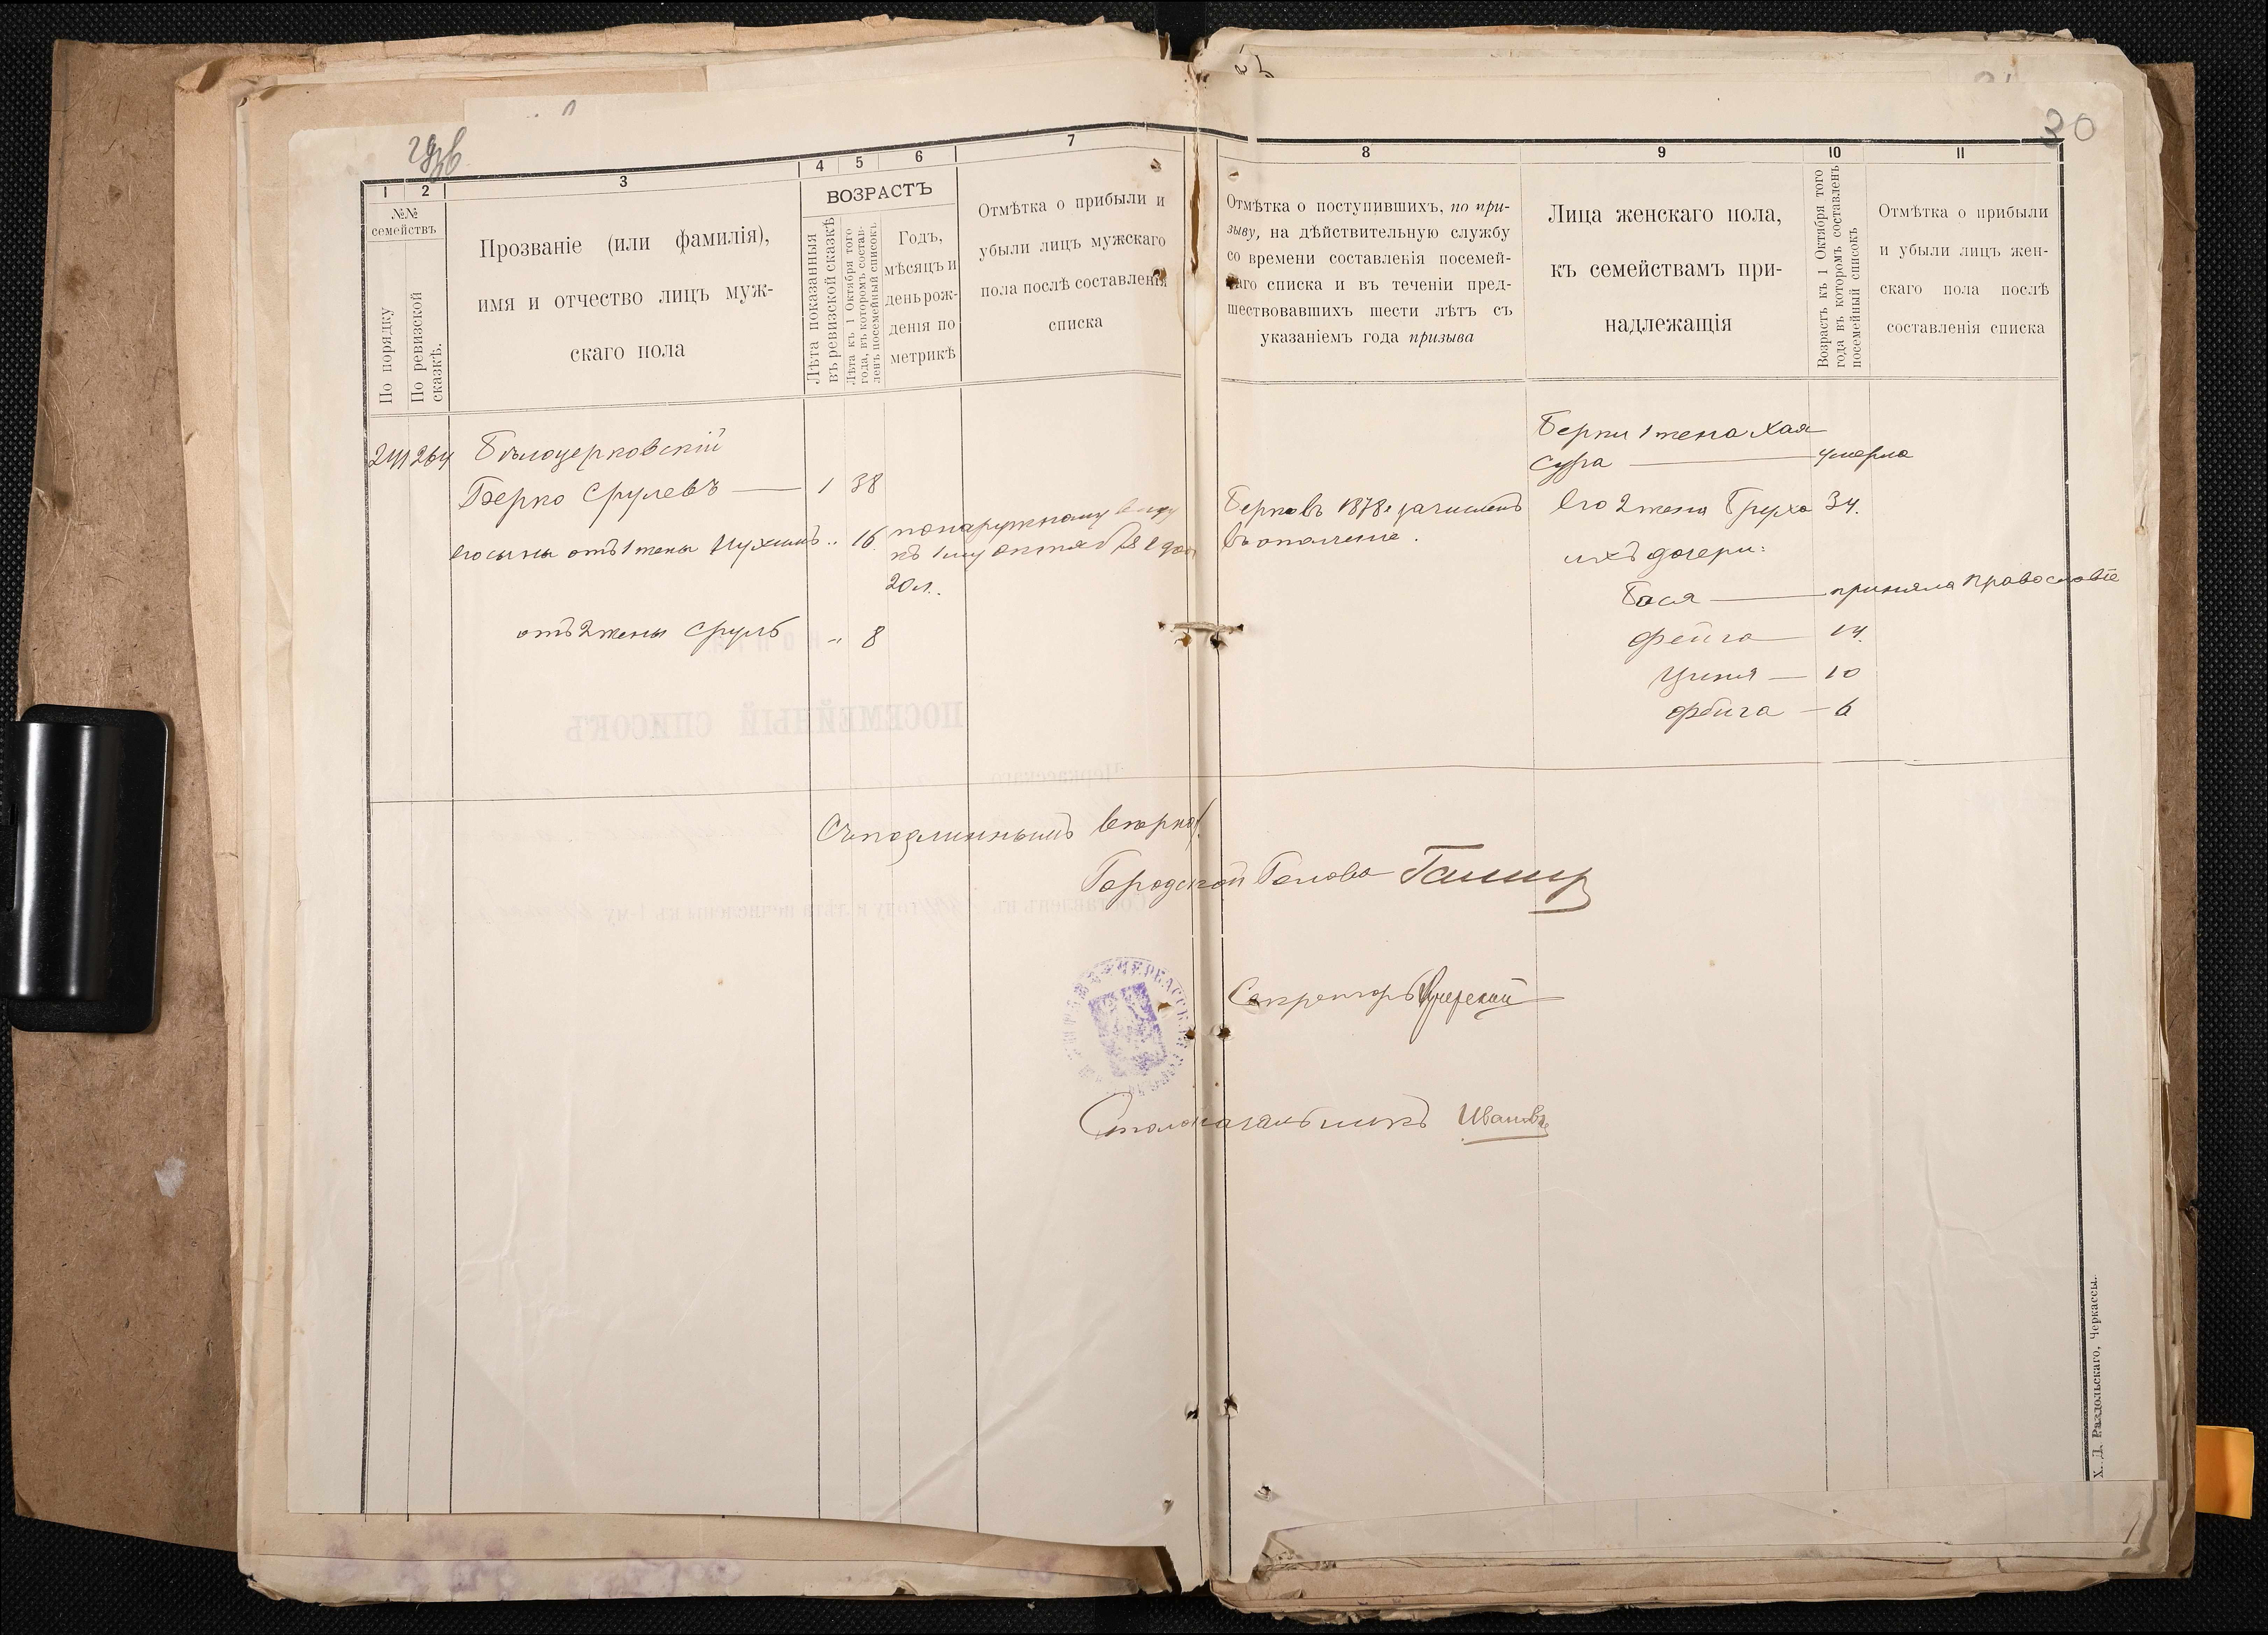 30
1
2
3
4
5
6
7
8
9
10
11
№№
семействъ
По порядку
По ревизской
сказкѣ.
Прозваніе (или фамилія),
имя и отчество лицъ муж-
скаго пола
ВОЗРАСТЪ
Лѣта показанныя
въ ревизской сказкѣ
Лѣта къ 1 Октября того
года, въ которомъ состав-
ленъ посемейный списокъ.
Годъ,
мѣсяцъ и
день рож-
денія по
метрикѣ
Отмѣтка о прибыли и
убыли лицъ мужскаго
пола послѣ составленія
списка
Отмѣтка о поступившихъ, по при-
зыву, на дѣйствительную службу
со времени составленія посемей-
наго списка и въ теченіи пред-
шествовавшихъ шести лѣтъ съ
указаніемъ года призыва
Лица женскаго пола,
къ семействамъ при-
надлежащія
Возрастъ къ 1 Октября того
года въ которомъ составленъ
посемейный списокъ
Отмѣтка о прибыли
и убыли лицъ жен-
скаго пола послѣ
составленія списка
241 264 Бѣлоцерковскій
Берко Срулевъ — 1 38
его сыны отъ 1 жены Нухимъ " 16
по наружному виду
къ 1му октября
20 л.
отъ 2 жены Сруль " 8
Берковъ 1878 г зачисленъ
въ ополченіе.
Берки 1 жена Хая
Сура — умерла
его 2 жена Груха 34.
ихъ дочери:
Бася — приняла Православіе
Фейга 14.
Циня — 10
Фейга — 6
Съ подлиннымъ вѣрно:
Городской Голова
Секретарь
Столоначальникъ Ивановъ
ПОСЕМЕЙНЫЙ СПИСОКЪ
Черкасскаго
Х. Д. Раздольскаго, Черкассы.